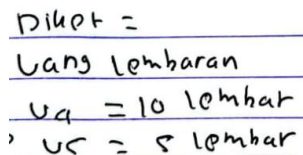 Diket =
Uang lembaran
Ua = 10 lembar
US = 5 lembar